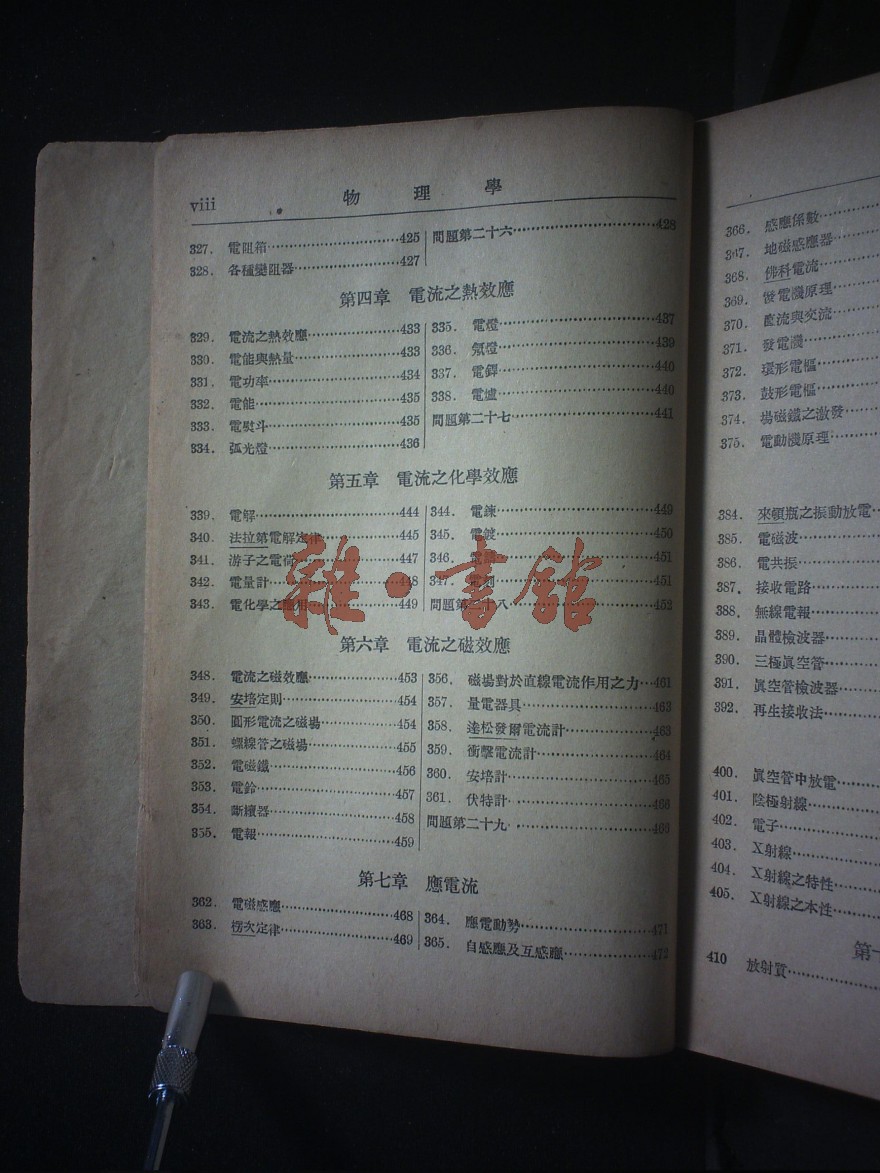 viii 物理學
327. 電阻箱 425
328. 各種變阻器 427
問題第二十六 428
第四章 電流之熱效應
329. 電流之熱效應 433
330. 電能與熱量 433
331. 電功率 434
332. 電能 435
333. 電熨斗 435
334. 弧光燈 436
335. 電燈 437
336. 氖燈 439
337. 電鐸 440
338. 電爐 440
問題第二十七 441
第五章 電流之化學效應
339. 電解 444
340. 法拉第電解定律 445
341. 游子之電荷 447
342. 電量計 448
343. 電化學之應用 449
344. 電鍊 449
345. 電鍍 450
346. 電 451
347. 電 451
問題第二十八 452
雜·書館
第六章 電流之磁效應
348. 電流之磁效應 453
349. 安培定則 454
350. 圓形電流之磁場 454
351. 螺線管之磁場 455
352. 電磁鐵 456
353. 電鈴 457
354. 斷續器 458
355. 電報 459
356. 磁場對於直線電流作用之力 461
357. 量電器具 463
358. 達松發爾電流計 463
359. 衝擊電流計 464
360. 安培計 465
361. 伏特計 466
問題第二十九 466
第七章 應電流
362. 電磁感應 468
363. 楞次定律 469
364. 應電動勢 471
365. 自感應及互感應 472
366. 感應係數
367. 地磁感應器
368. 佛科電流
369. 發電機原理
370. 直流與交流
371. 發電機
372. 環形電樞
373. 鼓形電樞
374. 場磁鐵之激發
375. 電動機原理
384. 來頓瓶之振動放電
385. 電磁波
386. 電共振
387. 接收電路
388. 無線電報
389. 晶體檢波器
390. 三極眞空管
391. 眞空管檢波器
392. 再生接收法
400. 眞空管中放電
401. 陰極射線
402. 電子
403. X射線
404. X射線之特性
405. X射線之本性
第十
410 放射質